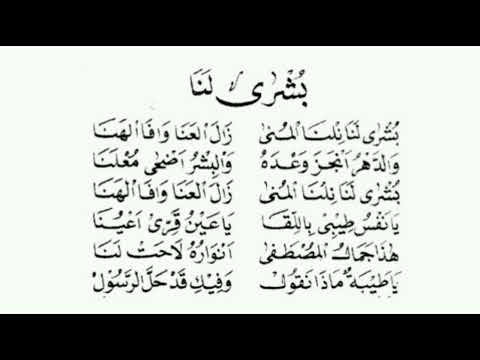 بُشْرٰى لَنَا
بُشْرٰى لَنَا نِلْنَا الْمُنٰى زَالَ الْعَنَا وَافَا الْهَنَا
وَالدَّهْرُ اَنْجَزَ وَعْدَهُ وَالْبِشْرُ اَضْحٰى مُعْلَنَا
بُشْرٰى لَنَا نِلْنَا الْمُنٰى زَالَ الْعَنَا وَافَا الْهَنَا
يَا نَفْسُ طِيْبِى بِاللِّقَا يَا عَيْنُ قَرِّى اَعْيُنَا
هٰذَا جَمَالُ الْمُصْطَفٰى اَنْوَارُهُ لَاحَتْ لَنَا
يَا طَيْبَةُ مَاذَا نَقُوْلُ وَفِيْكِ قَدْ حَلَّ الرَّسُوْلُ